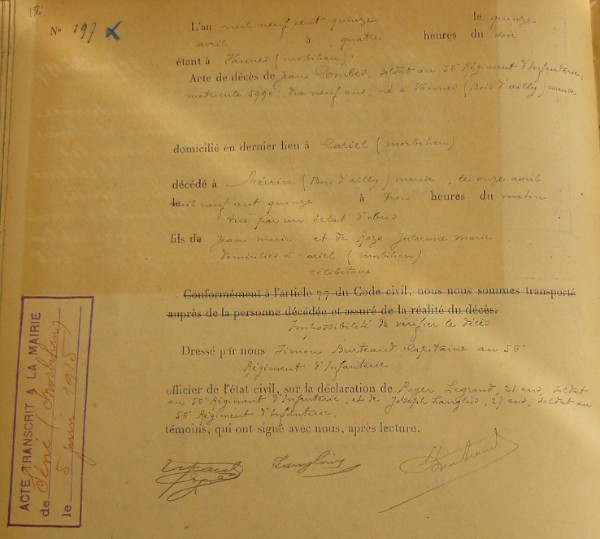 No 197 L'an mil neuf cent quinze le quinze
avril à quatre heures du soir
étant à Vannes (Morbihan)
Acte de décès de Jean Combes, soldat au 56e Régiment d'Infanterie,
matricule 5990 dix neuf ans, né à Vannes (Bois d'ailly) meuse
domicilié en dernier lieu à (morbihan)
décédé à Mécrin (Bois d'ailly) meuse, le onze avril
mil neuf cent quinze à trois heures du matin
tué par un éclat d'obus
fils de Jean marie et de Julienne marie
domiciliés à (morbihan)
célibataire
Conformément à l'article 77 du Code civil, nous nous sommes transporté
auprès de la personne décédée et assuré de la réalité du décès.
Impossibilité de vérifier le décès
Dressé par nous Simon Capitaine au 56e
Régiment d'Infanterie
officier de l'état civil, sur la déclaration de Roger Legrand, 21 ans, soldat
au 56e Régiment d'Infanterie, et de Joseph Langlois, 27 ans, soldat au
56e Régiment d'Infanterie
témoins, qui ont signé avec nous, après lecture.
Langlois
ACTE TRANSCRIT A LA MAIRIE
de Séné (Morbihan)
le 5 juin 1915